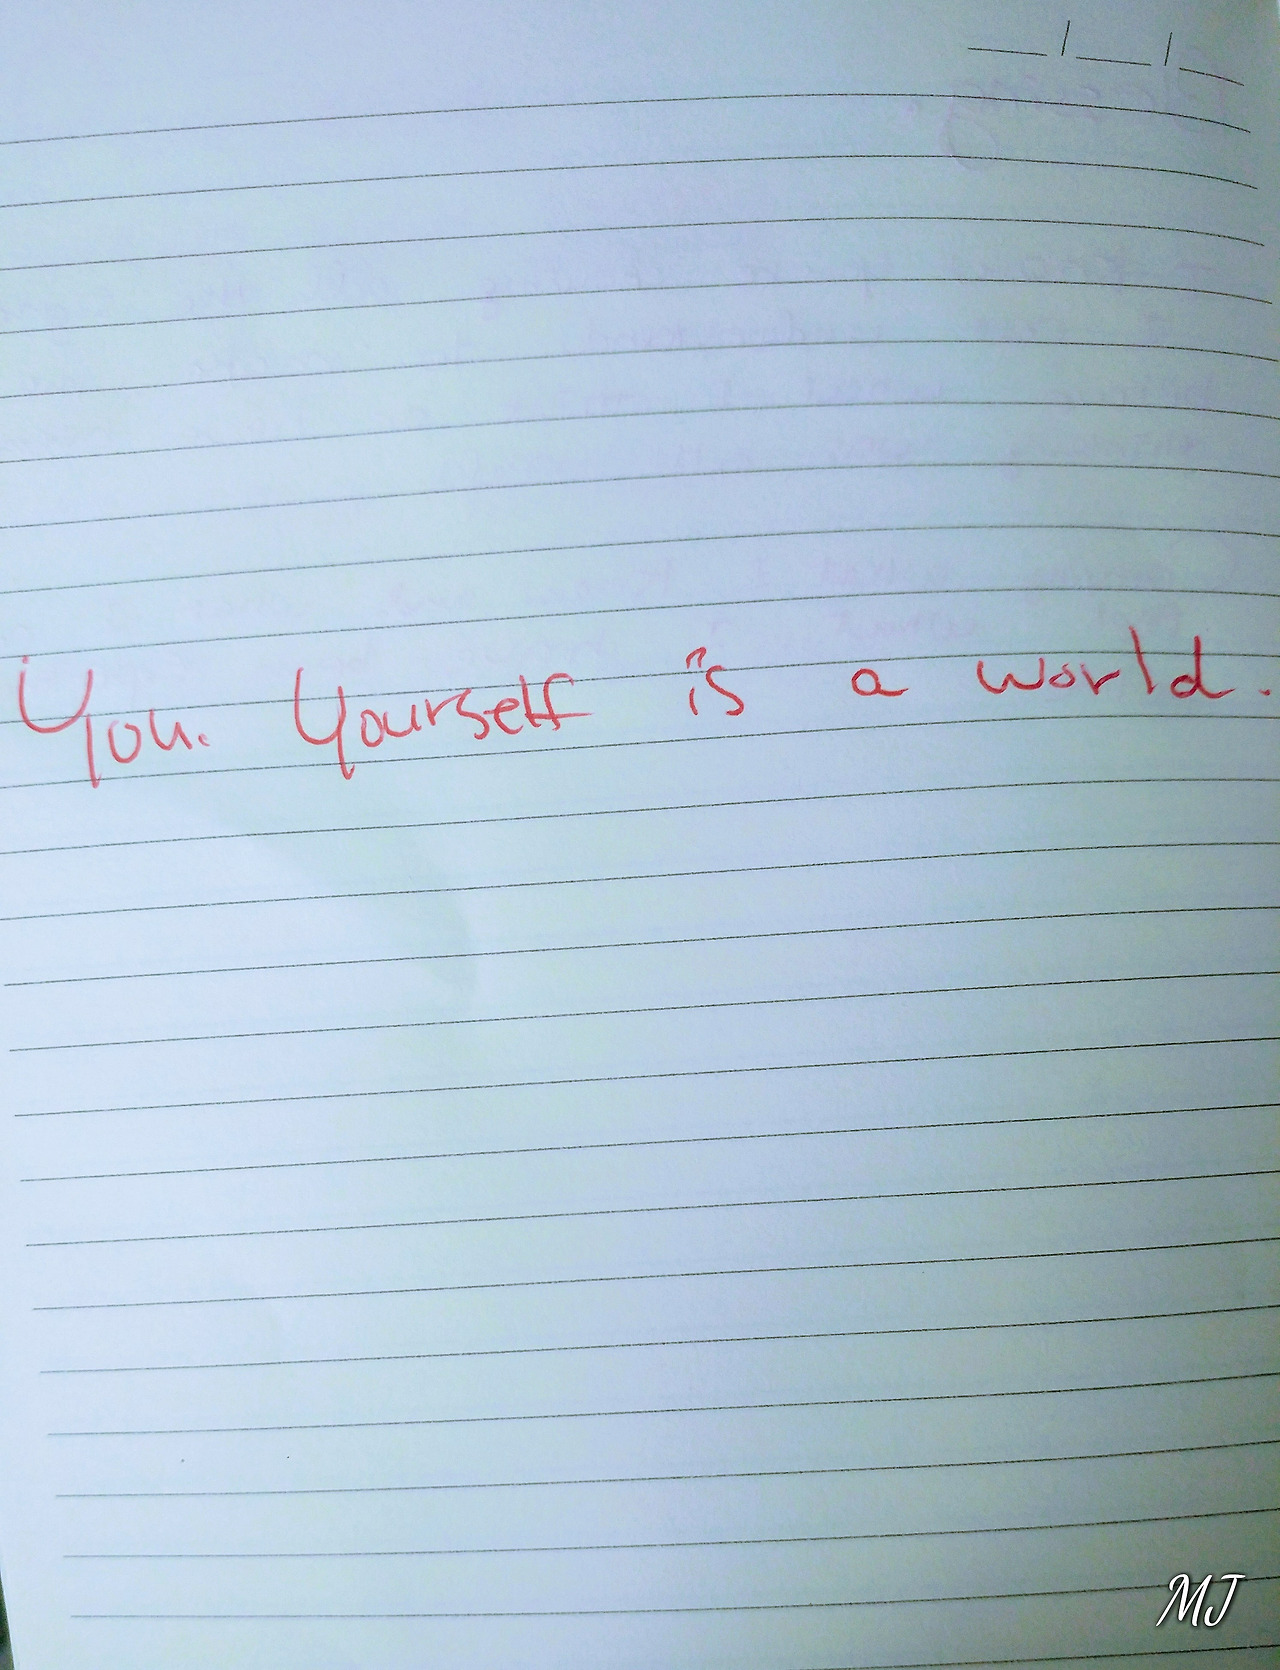 You. Yourself is a world.
MJ